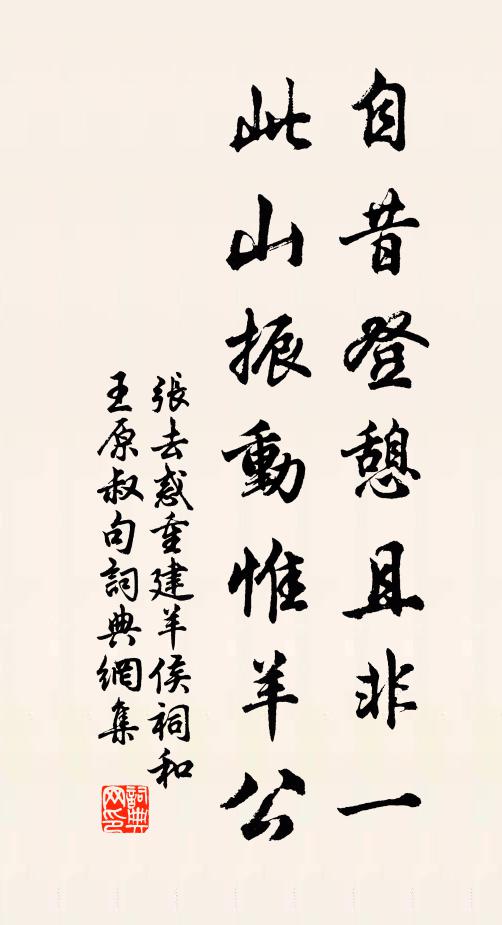 自昔登憩且非一
此山振動惟羊公
張去惑重建羊侯祠和
王原叔句詞典網集
詞典网印